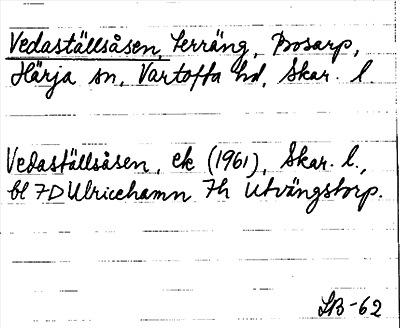 Vedaställsåsen, terräng, Bosarp,
Härja sn, Vartofta hd, Skar. l.
Vedaställsåsen, ek (1961), Skar. l.,
bl 7D Ulricehamn 7h Utvängstorp.
SB-62